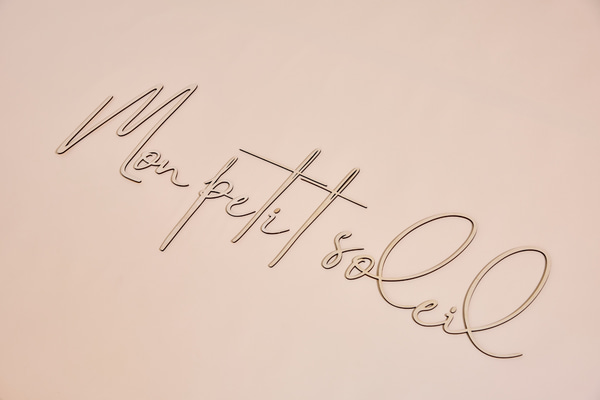 Mon petit soleil